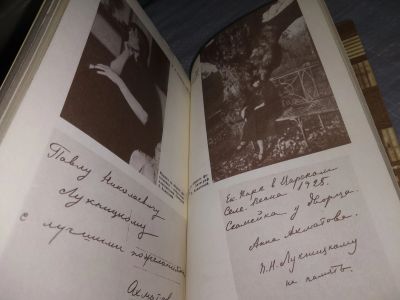 Павлу Николаевичу
Лукницкому
с лучшими пожеланиями
Ахматов
Ек. Парк в Царском
Селе. Весна 1925.
Скамейка у дворца.
Анна Ахматова.
П.Н. Лукницкому
на память.